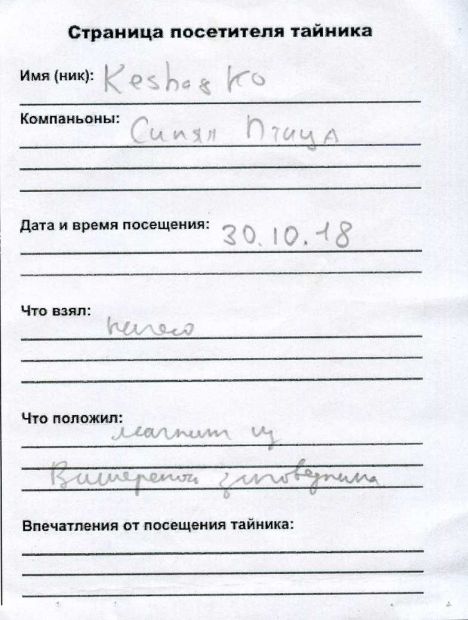 Страница посетителя тайника
Имя (ник): Keshas Ko
Компаньоны:
Синяя Птица
Дата и время посещения: 30.10.18
Что взял:
ничего
Что положил:
магнит из
Вишерского заповедника
Впечатления от посещения тайника: